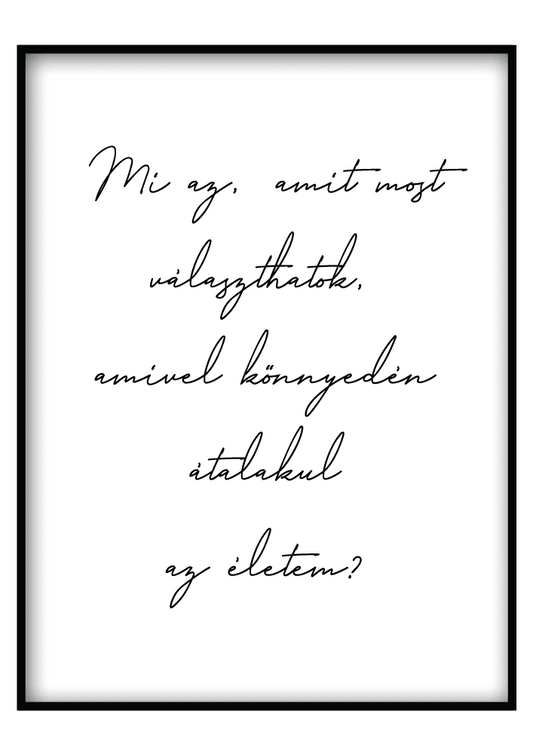 Mi az, amit most
választhatok,
amivel könnyedén
átalakul
az életem?